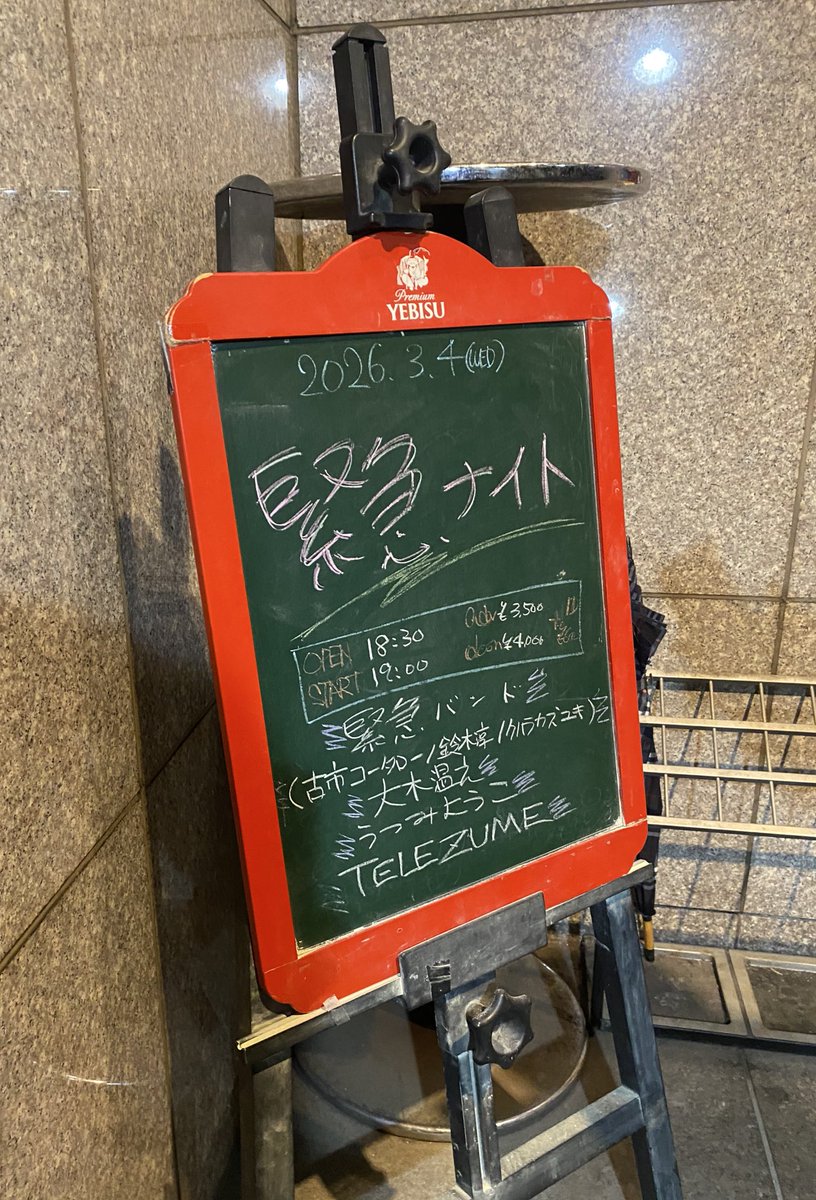 Premium
YEBISU
2026.3.4(WED)
緊急ナイト
OPEN 18:30 adv ¥3,500
START 19:00 door ¥4,000
緊急バンド
(古市コータロー/鈴木淳/クハラカズユキ)
大木温之
うつみようこ
TELEZUME